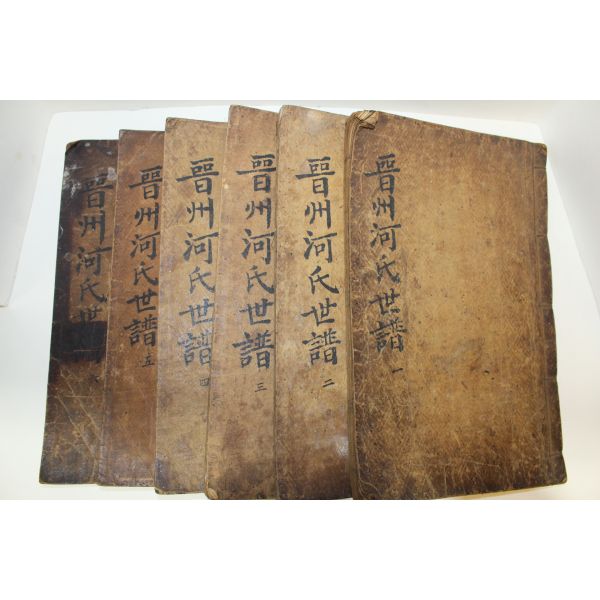 晋州河氏世譜 一
晋州河氏世譜 二
晋州河氏世譜 三
晋州河氏世譜 四
晋州河氏世譜 五
晋州河氏世 六